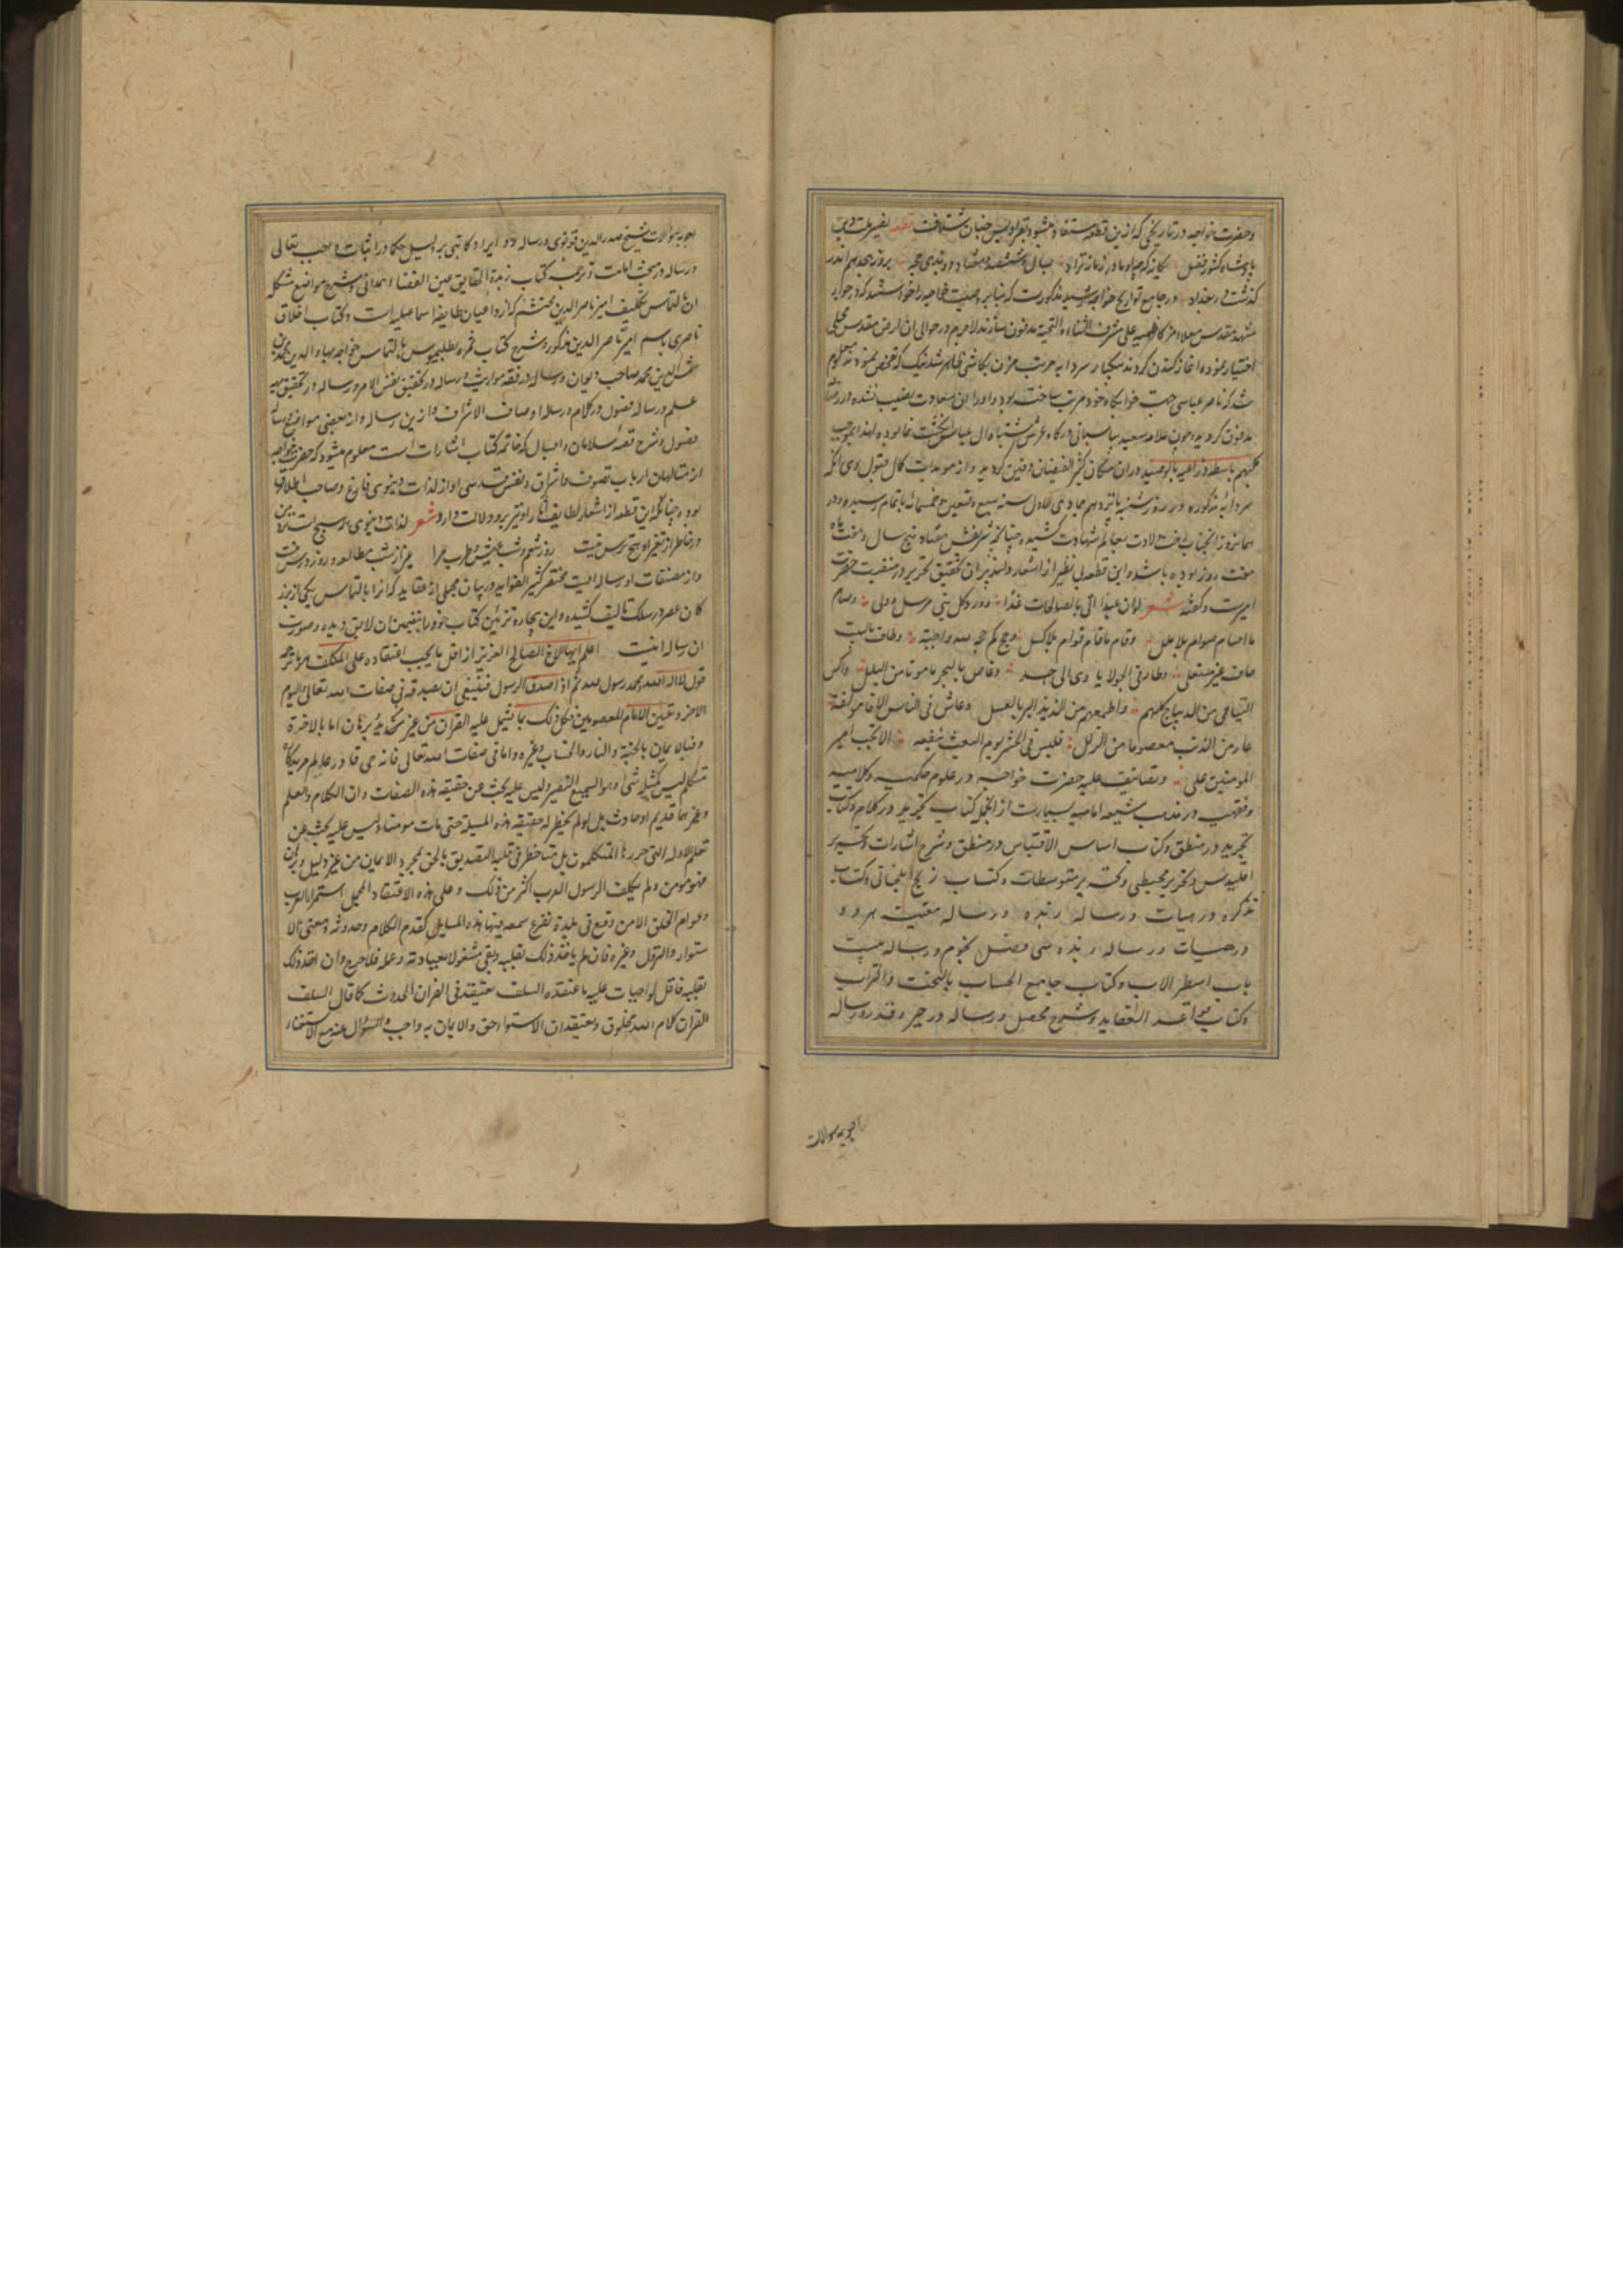 وحضرت خواجه در تاریخی که ازین قطعه مستفاد میشود بفرادیس جنان شتافت قطعه نصیر ملت و دین
پادشاه کشور فضل یکانه که چو او مادر زمانه نزاد بسال ششصد و هفتاد و دو بذی حجه بروز هجدهم اندر
گذشت در بغداد و در جامع تواریخ خواجه رشید مذکورست که بنابر وصیت خواجه را خواستند که در جوار
مشهد مقدس معلا امام کاظمیه علی مشرفه الثناء و التحیه مدفون سازند لاجرم در حوالی ان ارض مقدس محلی
اختیار نموده اغاز کندن کردند بیکبار سردابه مرتب مزین بکاشی ظاهر شد نیک که تفحص نمودند معلوم
شد که ناصر عباسی جهت خوابکاه خود مرتب ساخته بود و او را ان سعادت نصیب نشده و در رصافه
مدفون گردیده و چون علامه سعید پاسبانی درگاه عرش اشتباه ال عباس
کلبهم باسط ذراعیه بالوصید دران مکان کثیر الفیضان دفین گردید و از مویدات کمال قبول وی انکه
سردابه مذکوره در روز شنبه یازدهم جمادی الاول سنه سبع و تسعین و خمسمائه باتمام رسیده و در
همانروز انجناب رخت ولادت بعالم شهادت کشیده چنانچه عمر شریفش هفتاد و پنج سال و هفت ماه
هفت روز بوده باشد و این قطعه بی نظیر از اشعار دلپذیر ان محقق تحریر در منقبت حضرت
امیرست و گفته شعر لو ان عبدا اتی بالصالحات غدا وود کل نبی مرسل و ولی وصام
ما صام صوام بلا ملل وقام ما قام قوام بلا کسل وحج کم حجه لله واجبة وطاف بالبیت
حاف غیر منتعل وطار فی الجو لا یاوی الی احد وغاص بالبحر مامونا من البلل واکس
الیتامی من الدیباج کلهم واطعمهم من لذیذ البر بالعسل وعاش فی الناس الافا مولفة
عار من الذنب معصوما من الزلل فلیس فی الحشر یوم البعث ینفعه الا بحب امیر
المومنین علی وتصانیف علیه حضرت خواجه در علوم حکمیه وکلامیه
وفقهیه در مذهب شیعه امامیه بسیارست از انجمله کتاب تجرید در کلام وکتاب
تجرید در منطق وکتاب اساس الاقتباس در منطق وشرح اشارات وتحریر
اقلیدس وتحریر مجسطی وتحریر متوسطات وکتاب زیج ایلخانی وکتاب
تذکره در هیات ورساله زبده ورساله معینیه هر دو
در هیات ورساله زبده سی فصل نجوم ورساله بیست
باب اسطرلاب وکتاب جامع الحساب بالتخت والتراب
وکتاب قواعد العقاید وشرح محصل ورساله در جبر وقدر ورساله
اجوبه سوالات
اجوبه سوالات شیخ صدرالدین قونوی ورساله رد ایراد کاتبی بر دلیل حکما در اثبات واجب تعالی
ورساله در مبحث امامت وترجمه کتاب زبدة الحقایق عین القضاة همدانی وشرح مواضع مشکله
ان بالتماس وتکلیف امیر ناصرالدین محتشم که از داعیان طایفه اسماعیلیه است وکتاب اخلاق
ناصری باسم امیر ناصرالدین مذکور وشرح کتاب ثمره بطلیموس بالتماس خواجه بهاءالدین محمد بن
شمس الدین محمد صاحب دیوان ورساله در فقه مواریث ورساله در تحقیق نفس الامر ورساله در تحقیق
علم ورساله فصول در کلام ورساله اوصاف الاشراف وازین رساله واز بعضی مواضع رساله
فصول وشرح قصه سلامان وابسال که خاتمه کتاب اشارات است معلوم میشود که حضرت خواجه
از متالهان ارباب تصوف واشراق ونفس قدسی او از لذات دنیوی فارغ وصاحب اطلاق
بوده چنانکه این قطعه از اشعار لطایف اثار او نیز برو دلالت دارد شعر لذات دنیوی همه هیچست نزد من
در خاطر از تغیر او هیچ ترس نیست روز تنعم وشب عیش وطرب مرا غیر از شب مطالعه وروز درس نیست
واز مصنفات او رساله ایست مختصر کثیر الفواید در بیان مجملی از عقاید که انرا بالتماس یکی از بزر
کان عصر در سلک تالیف کشیده واین بیچاره تزئین کتاب خود را بتضمین ان لایق دیده وصورت
ان رساله اینست اعلم ایها الاخ الصالح العزیز ان اقل ما یجب اعتقاده علی المکلف هو ما ترجمه
قول لا اله الا الله محمد رسول الله ثم اذا صدق الرسول فینبغی ان یصدقه فی صفات الله تعالی والیوم
الاخر وتعیین الامام المعصوم وکل ذلک بما یشتمل علیه القران من غیر مزید برهان اما بالاخرة
فبالایمان بالجنة والنار والحساب وغیره واما فی صفات الله تعالی فانه حی قادر عالم مرید کاره
متکلم لیس کمثله شیٔ وهو السمیع البصیر ولیس علیه بحث عن حقیقة هذه الصفات وان الکلام والعلم
وغیرهما قدیم او حادث بل لو لم یخطر له حقیقة هذه المسیلة حتی مات مات مومنا ولیس علیه بحث عن
تعلم الادلة التی حررها المتکلمون بل متی خطر فی قلبه التصدیق بالحق بمجرد الایمان من غیر دلیل وبرهان
فهو مومن ولم یکلف الرسول العرب اکثر من ذلک وعلی هذه الاعتقاد المجمل استمر العرب
وعوام الخلق الا من وقع فی بلدة تقرع سمعه فیها هذه المسایل کقدم الکلام وحدوثه ومعنی الا
ستوار والنزول وغیره فان لم یاخذ ذلک بقلبه وبقی مشغولا بعبادته وعمله فلا حرج وان اخذ ذلک
بقلبه فاقل الواجبات علیه ما اعتقده السلف یعتقد فی القران الحدوث کما قال السلف
القران کلام الله مخلوق ویعتقد ان الاستواء حق والایمان به واجب والسوال عنه مع الاستغناء